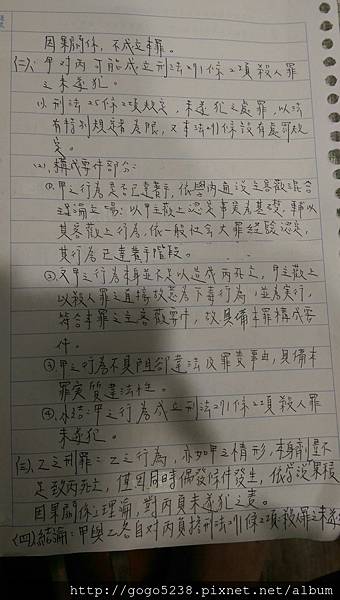 因果關係,不成立本罪。
(二)、甲對丙可能成立刑法271條2項殺人罪
之未遂犯。
(1)、刑法25條2項規定,未遂犯之處罪,以法
有特別規定者為限,又本法271條設有處罰規
定。
(2)、構成要件部分:
①甲之行為是否已達著手,依學內通說主客觀混合
理論立場:以甲主觀上認定事實為基礎,輔以
其客觀上行為,依一般社會大眾經驗認定,
其行為已達著手階段。
②又甲之行為本身並不足以造成丙死亡,甲主觀上
以殺人罪之直接故意為下毒行為,並為實行,
符合本罪之主客觀要件,故具備本罪構成要
件。
③甲之行為不具阻卻違法及罪責事由,具備本
罪實質違法性。
④小結:甲之行為成立刑法271條2項殺人罪
未遂犯。
(三)、乙之刑罪:乙之行為,亦如甲之情形,本身劑量不
足致丙死亡,僅因同時偶發條件發生,依學說累積
因果關係之理論,對丙負未遂犯之責。
(四)結論:甲與乙各自對丙負擔刑法271條2項殺人罪之未遂
http://gogo5238.pixnet.net/album